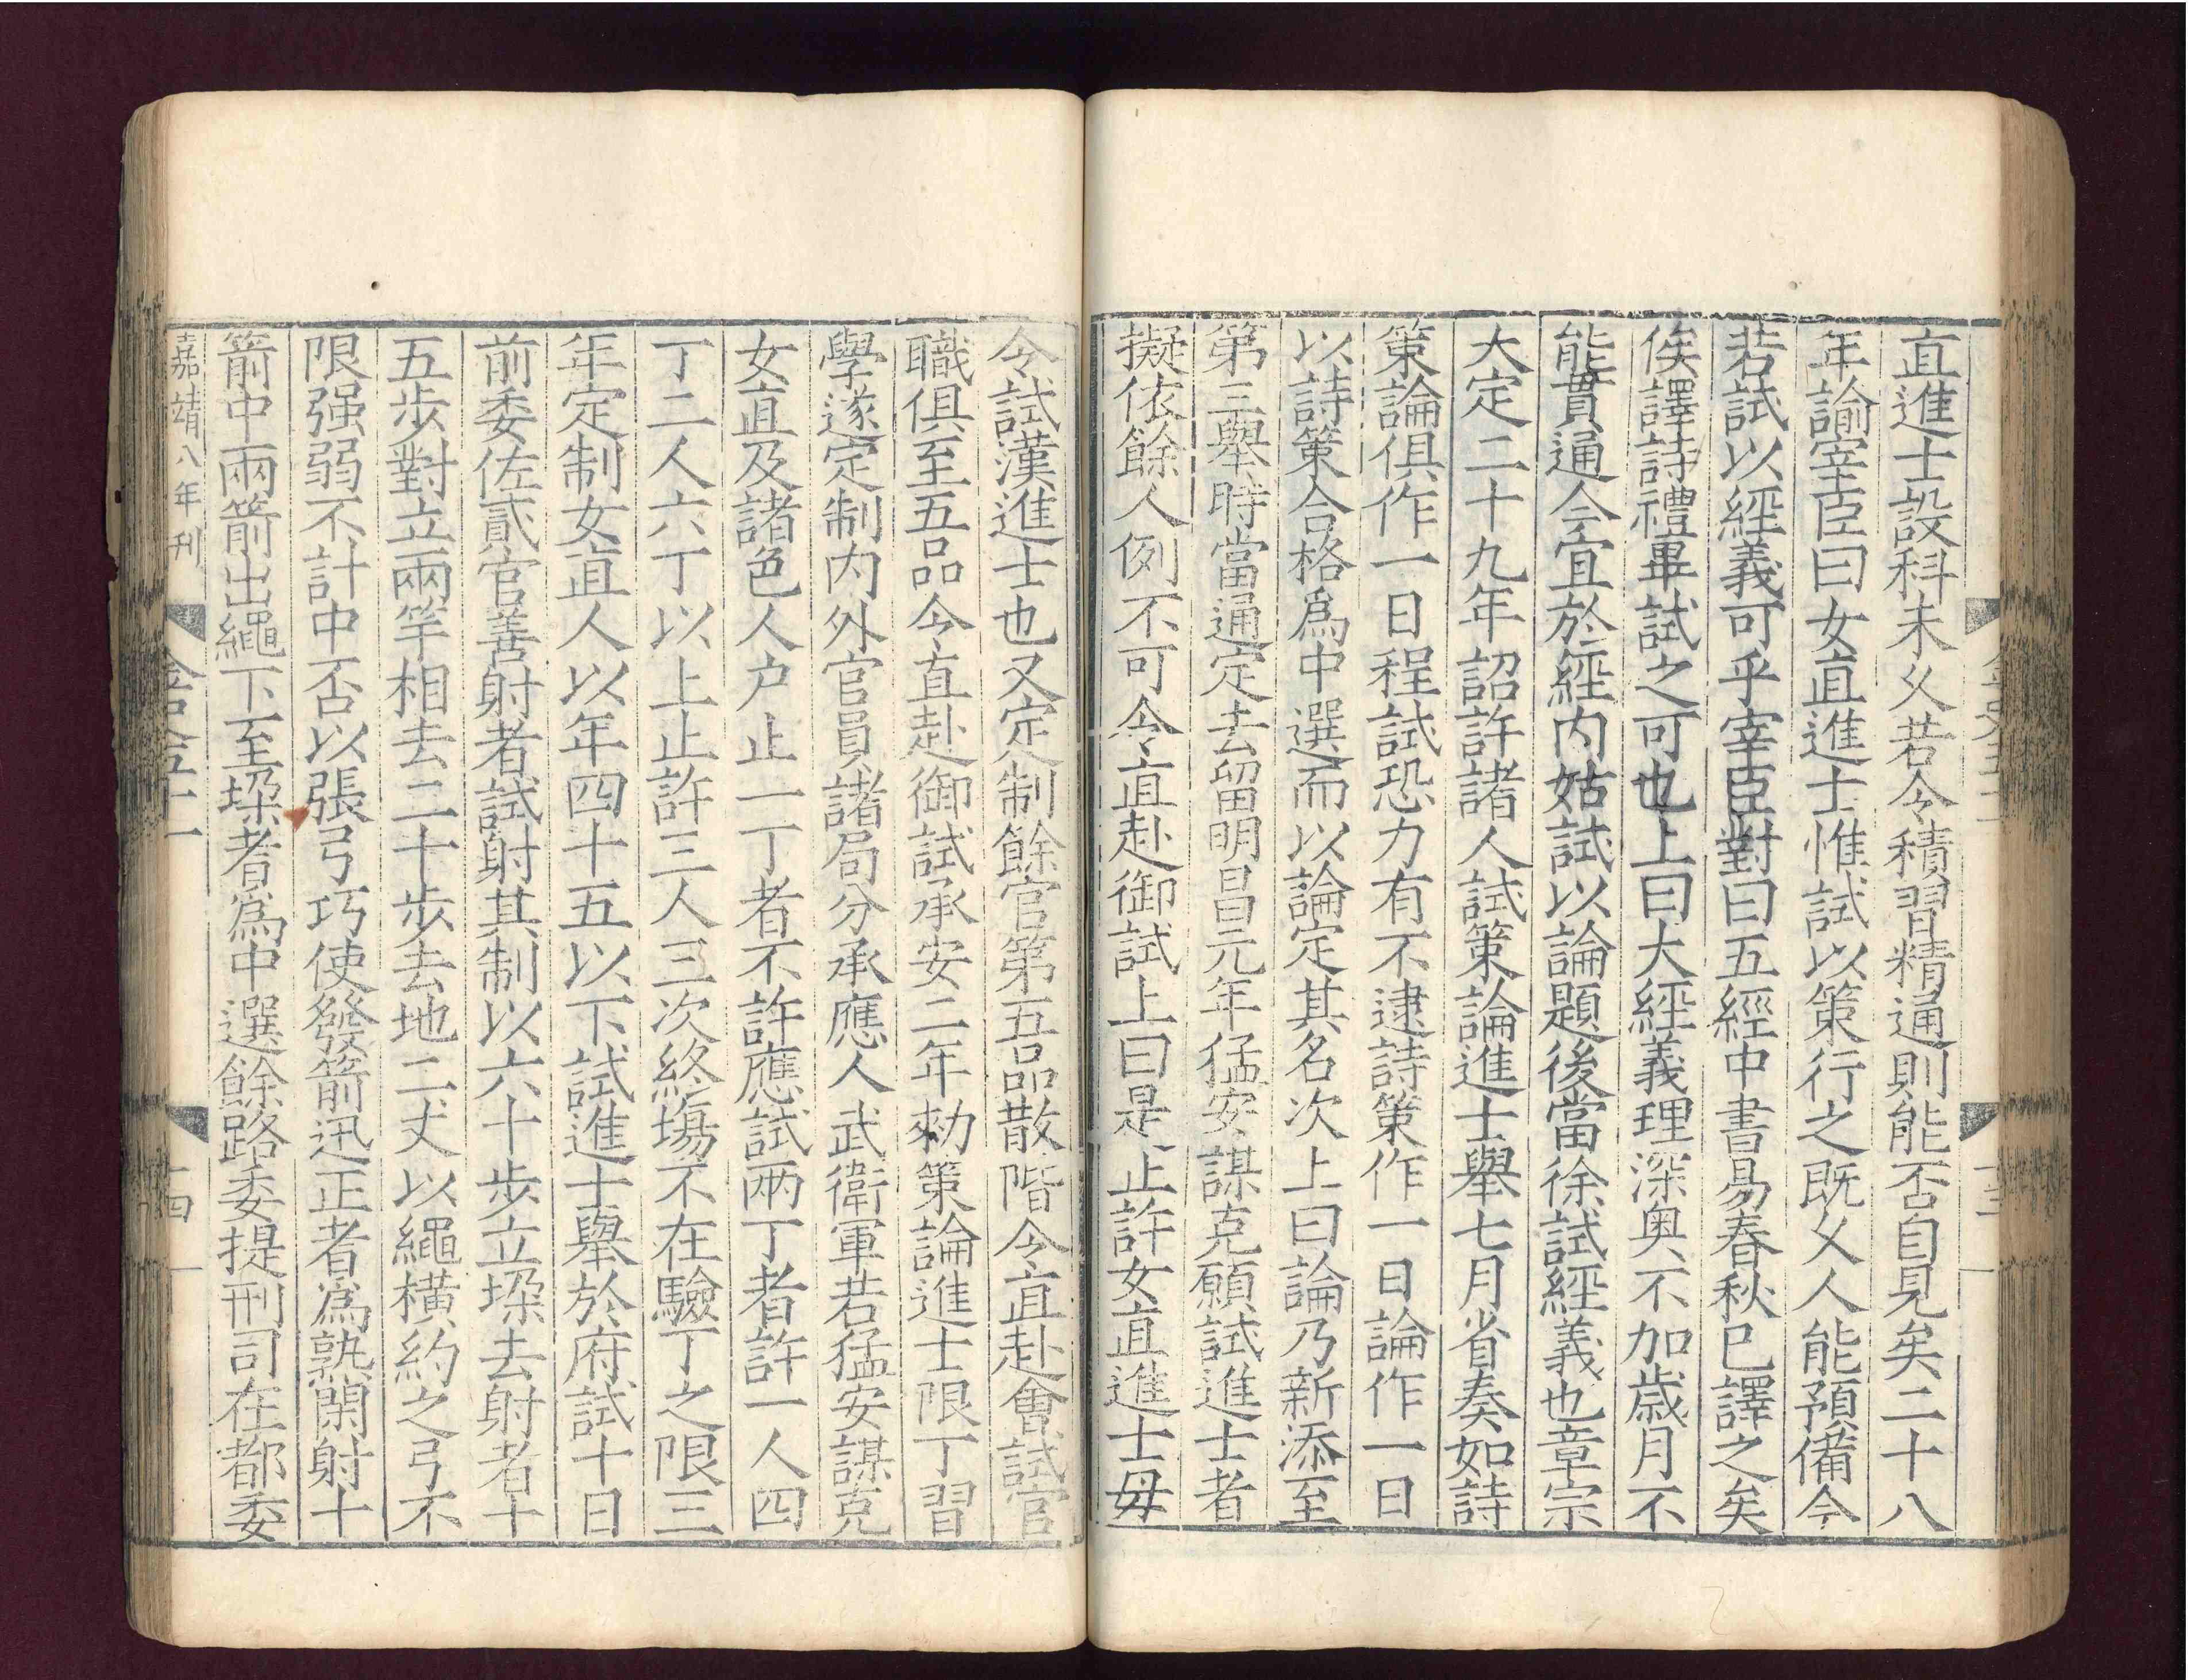 直進士設科未久若令積習精通則能否自見矣二十八
年諭宰臣曰女直進士惟試以策行之既久人能預備今
若試以經義可乎宰臣對曰五經中書易春秋已譯之矣
俟譯詩禮畢試之可也上曰大經義理深奧不加歲月不
能貫通今宜於經内姑試以論題後當徐試經義也章宗
大定二十九年詔許諸人試策論進士舉七月省奏如詩
策論俱作一日程試恐力有不逮詩策作一日論作一日
以詩策合格爲中選而以論定其名次上曰論乃新添至
第三舉時當通定去留明昌元年猛安謀克願試進士者
擬依餘人例不可令直赴御試上曰是止許女直進士毋
令試漢進士也又定制餘官第五品散階令直赴會試官
職俱至五品令直赴御試承安二年勑策論進士限丁習
學遂定制内外官員諸局分承應人武衛軍若猛安謀克
女直及諸色人户止一丁者不許應試兩丁者許一人四
丁二人六丁以上止許三人三次終場不在驗丁之限三
年定制女直人以年四十五以下試進士舉於府試十日
前委佐貳官善射者試射其制以六十步立垛去射者十
五步對立兩竿相去二十步去地二丈以繩横約之弓不
限强弱不計中否以張弓巧使發箭迅正者爲熟閑射十
箭中兩箭出繩下至垛者爲中選餘路委提刑司在都委
嘉靖八年刋
金史五十一
十四